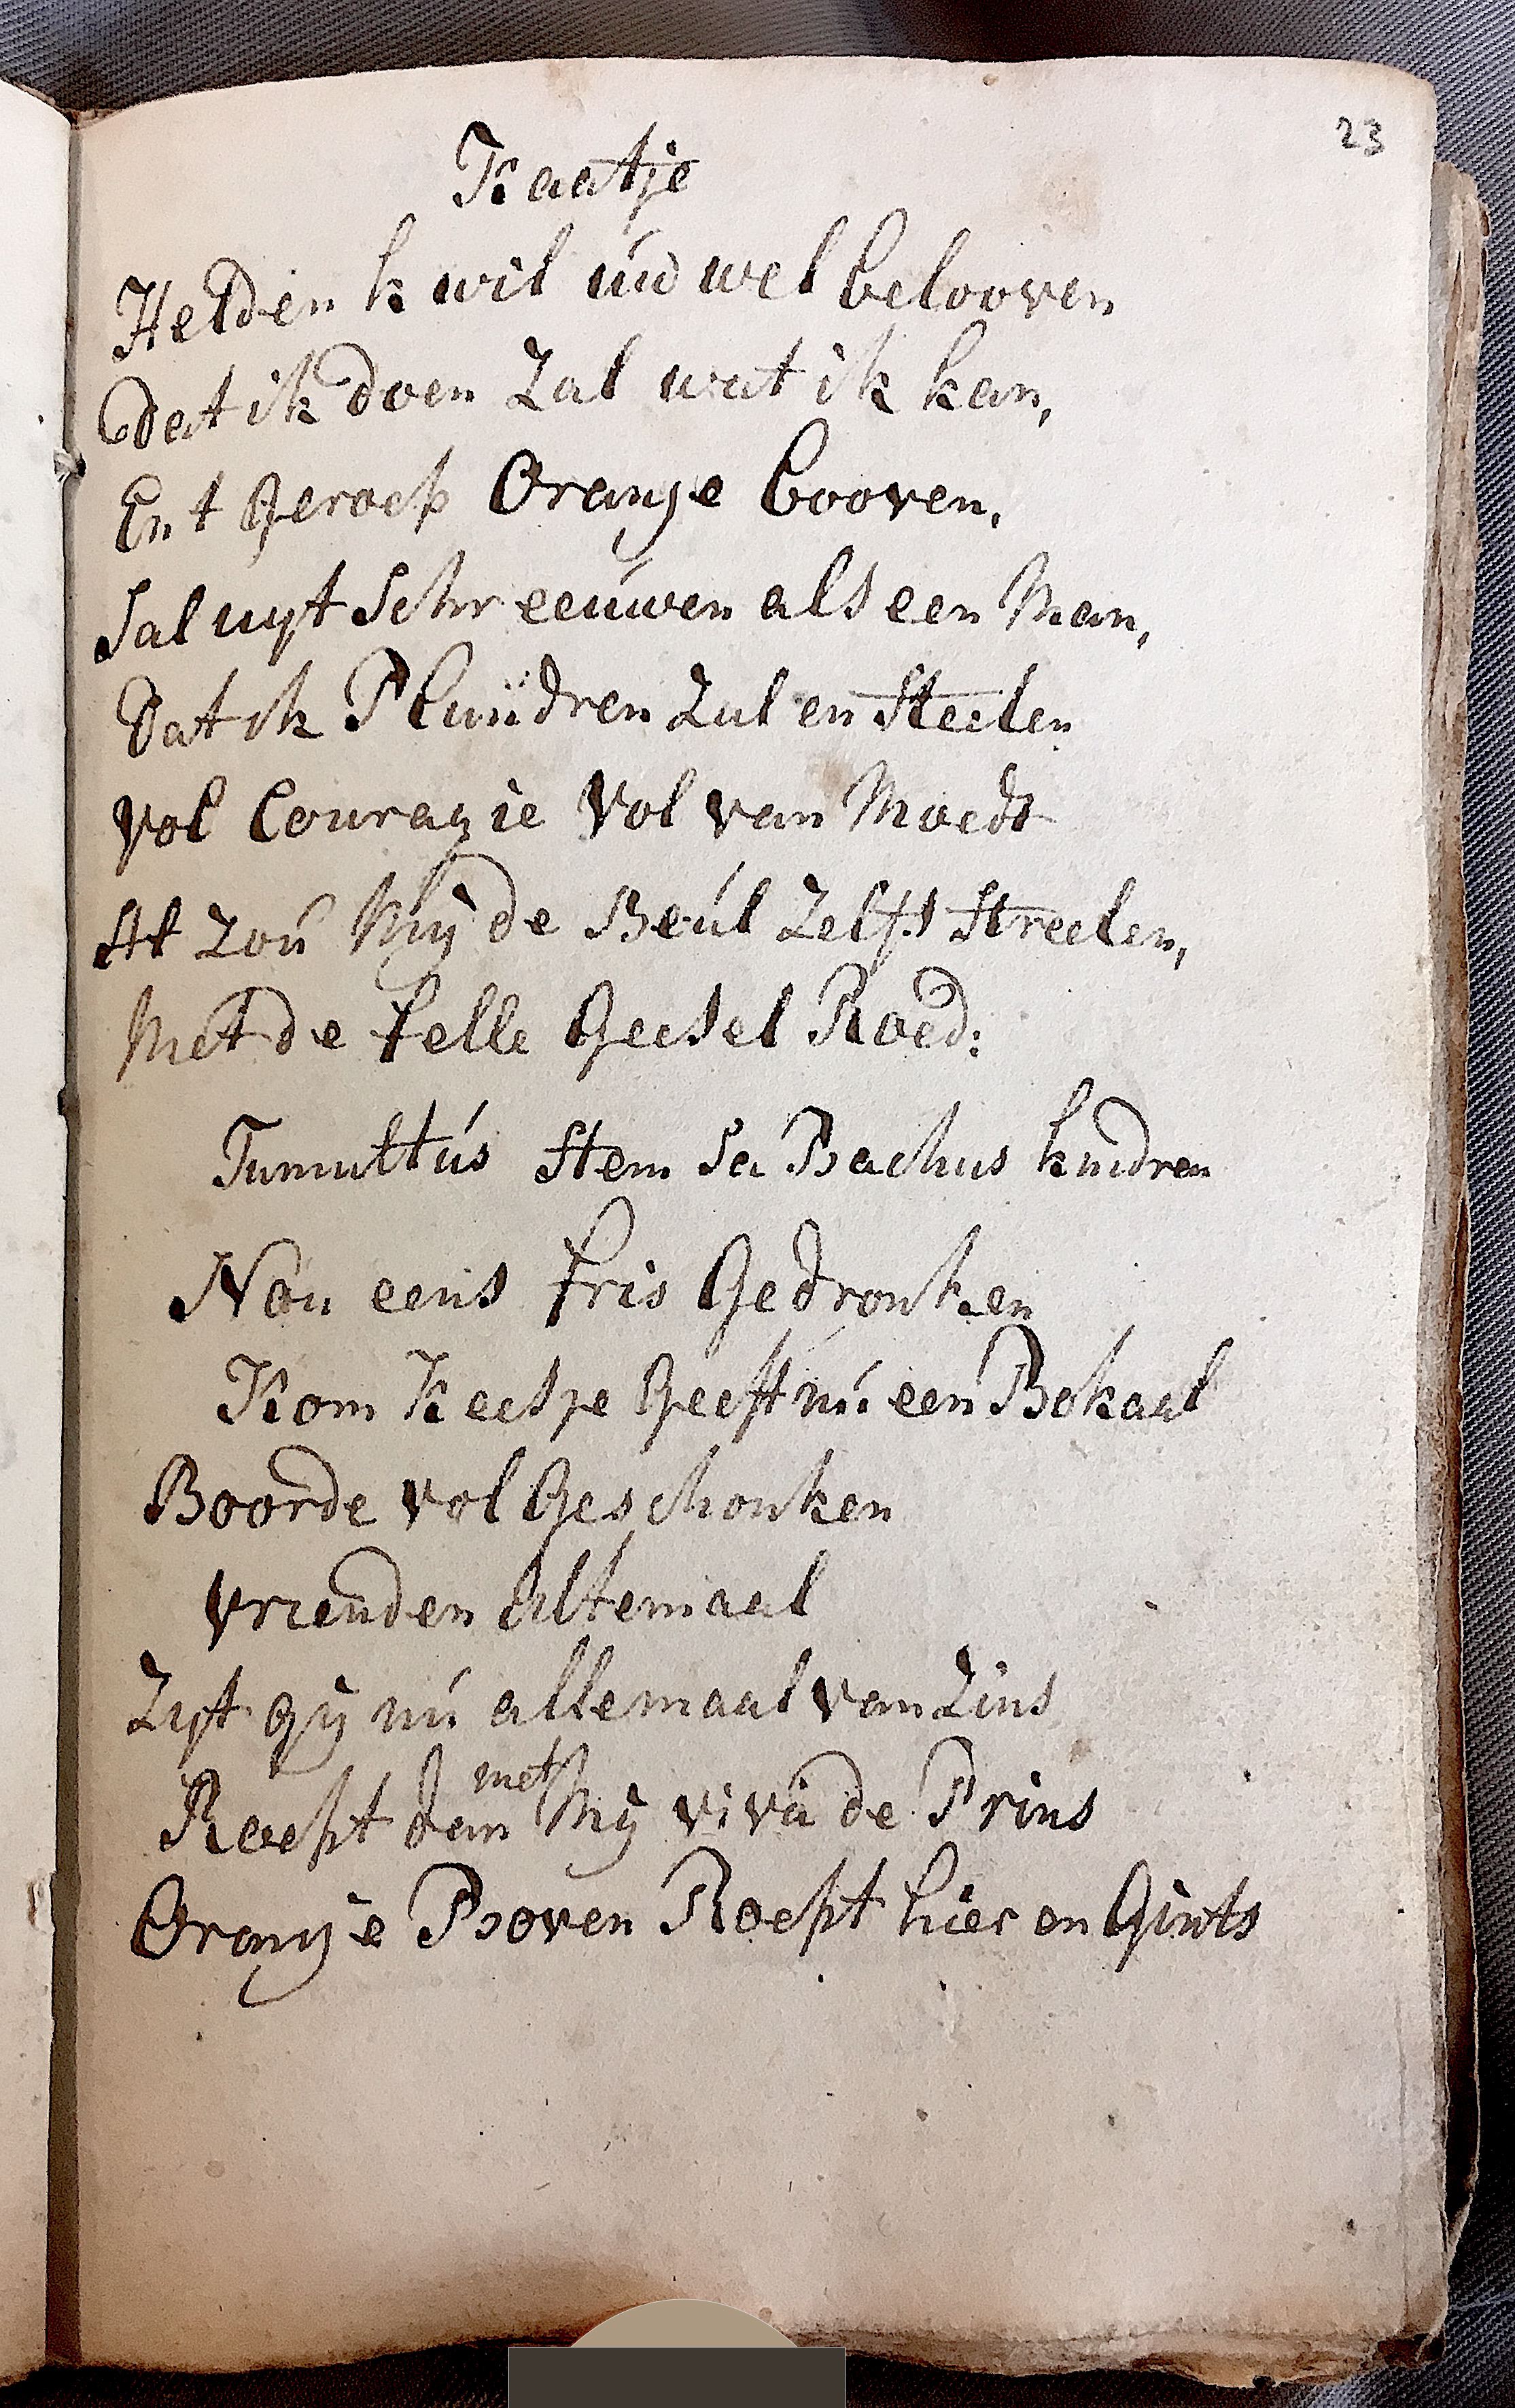 23
Kaatje
Helden k wil uw wel belooven
Dat ik doen Zal wat ik kan,
En t Geroep Oranje booven,
Sal uyt Schreeuwen als een Man,
Dat ik Plundren Zal en Steelen
Vol Couragie Vol van Moedt
Al zou Mij de Beul Zelfs Streelen,
Met de felle Geesel Roed:
Tumultus Stem Sa Bachus kindren
Nou eens fris Gedronken
Kom Keesje Geeft nu een Bokaal
Boorde vol Geschonken
Vrienden Altemaal
Zijt gij nu allemaal van Zins
Roept dan met Mij viva de Prins
Oranje Boven Roept hier en Gints